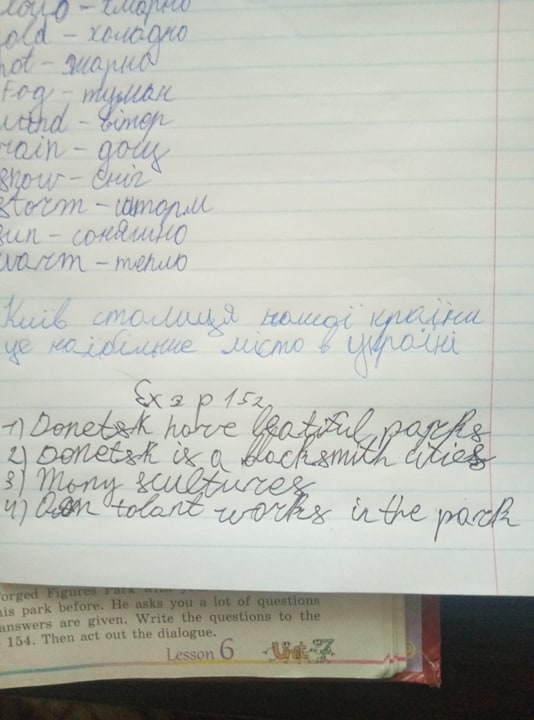 old - холадно
hot - жарко
Fog - туман
wind - вітер
rain - дощ
snow - сніг
storm - шторм
sun - сонячно
warm - тепло
Київ столиця нашої країни
це найбільше місто в україні
Ex 2 p 152
1) Donetsk have beatiful parks
2) Donetsk is a blocksmith cities
3) Many scultures
4) tolant works in the park
orged Figures Park with
is park before. He asks you a lot of questions
answers are given. Write the questions to the
154. Then act out the dialogue.
Lesson 6 Unit 7